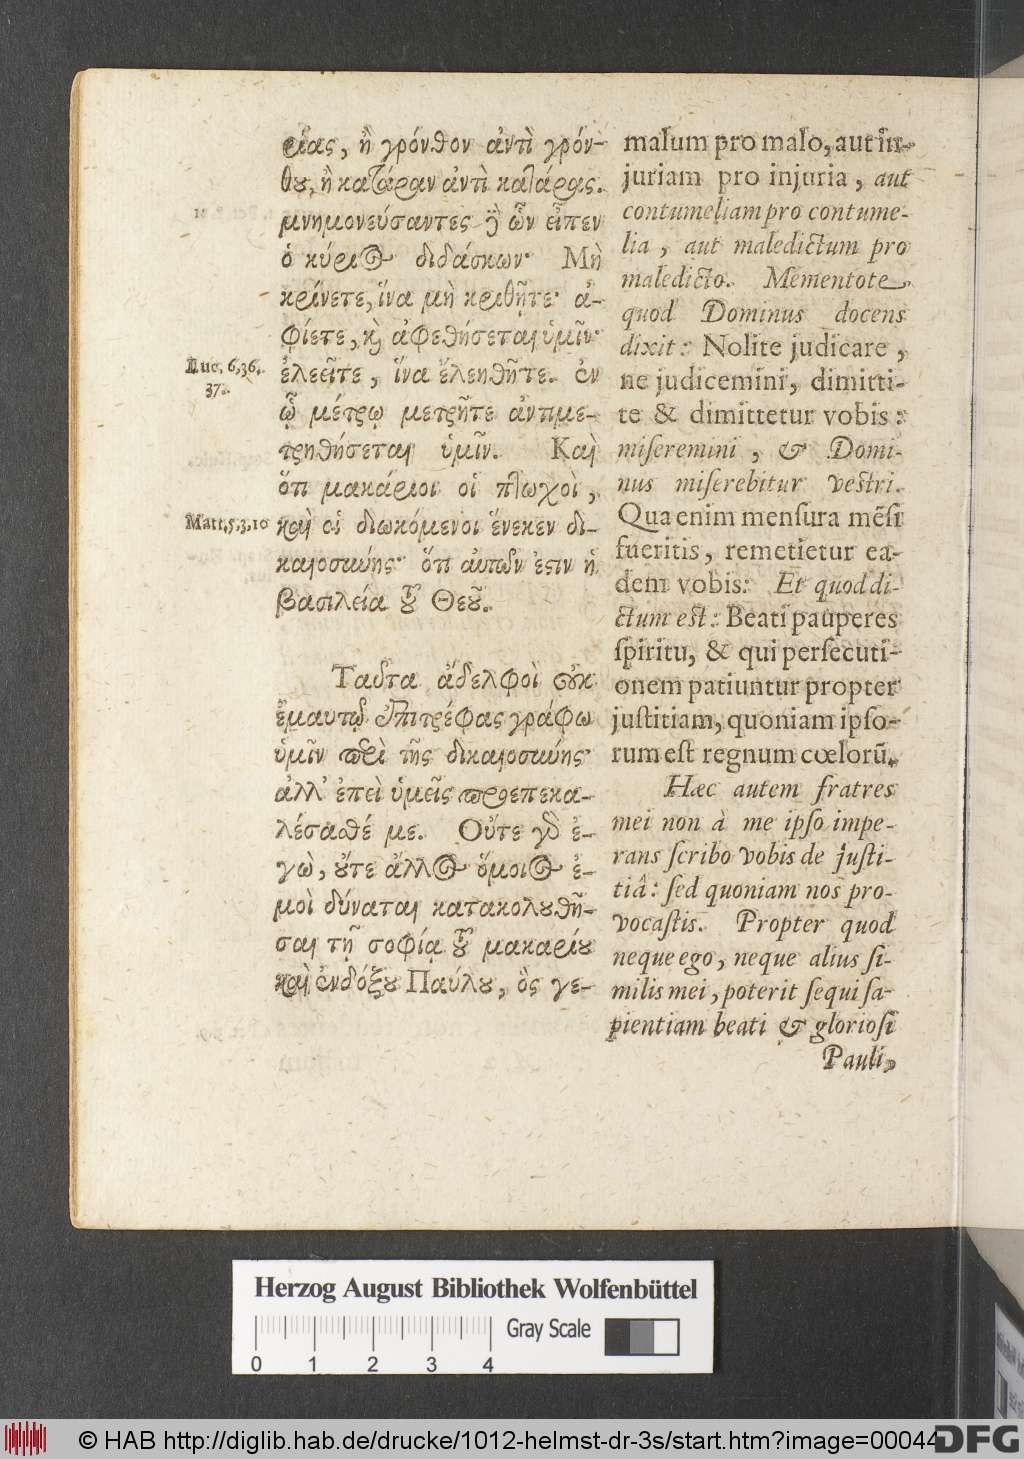 ρίας, ἢ γρόνθον ἀντὶ γρόν-
θου, ἢ κατάραν ἀντὶ κατάρας.
μνημονεύσαντες δὲ ὧν εἶπεν
ὁ κύριος διδάσκων· Μὴ
κρίνετε, ἵνα μὴ κριθῆτε· ἀ-
φίετε, καὶ ἀφεθήσεται ὑμῖν·
ἐλεεῖτε, ἵνα ἐλεηθῆτε. ἐν
ᾧ μέτρῳ μετρῆτε ἀντιμε-
τρηθήσεται ὑμῖν. Καὶ
ὅτι μακάριοι οἱ πτωχοὶ,
καὶ οἱ διωκόμενοι ἕνεκεν δι-
καιοσύνης· ὅτι αὐτῶν ἐστιν ἡ
βασιλεία τοῦ Θεοῦ.
Ταῦτα ἀδελφοὶ οὐκ
ἐμαυτῷ ἐπιτρέψας γράφω
ὑμῖν περὶ τῆς δικαιοσύνης·
ἀλλ' ἐπεὶ ὑμεῖς προεπεκα-
λέσασθέ με. Οὔτε γὰρ ἐ-
γὼ, οὔτε ἄλλος ὅμοιος ἐ-
μοὶ δύναται κατακολουθῆ-
σαι τῇ σοφίᾳ τοῦ μακαρίου
καὶ ἐνδόξου Παύλου, ὃς γε-
Luc. 6,36.
37.
Matt. 5,3,10
malum pro malo, aut in-
juriam pro injuria, aut
contumeliam pro contume-
lia, aut maledictum pro
maledicto. Mementote,
quod Dominus docens
dixit: Nolite judicare,
ne judicemini, dimitti-
te & dimittetur vobis:
miseremini, & Domi-
nus miserebitur vestri.
Qua enim mensura mẽsi
fueritis, remetietur ea-
dem vobis: Et quod di-
ctum est: Beati pauperes
spiritu, & qui persecuti-
onem patiuntur propter
justitiam, quoniam ipso-
rum est regnum cœlorũ.
Hæc autem fratres
mei non à me ipso impe-
rans scribo vobis de justi-
tiâ: sed quoniam nos pro-
vocastis. Propter quod
neque ego, neque alius si-
milis mei, poterit sequi sa-
pientiam beati & gloriosi
Pauli,
Herzog August Bibliothek Wolfenbüttel
Gray Scale
0 1 2 3 4
© HAB http://diglib.hab.de/drucke/1012-helmst-dr-3s/start.htm?image=00044
DFG